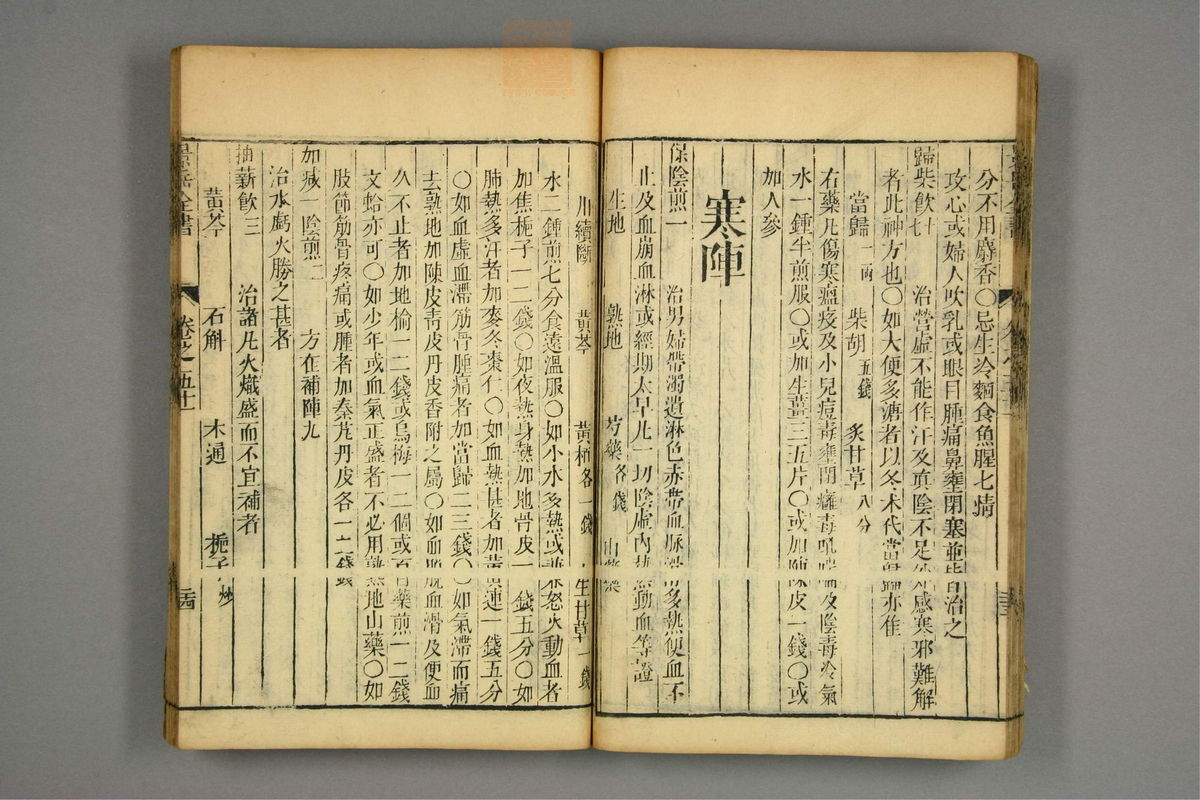 分不用麝香〇忌生冷麵食魚腥七情
攻心或婦人吹乳或眼目腫痛鼻壅閉塞並皆治之
歸柴飲 治營虛不能作汗及真陰不足外感寒邪難解
者此神方也〇如大便多溏者以冬朮代當歸亦佳
當歸一兩 柴胡五錢 炙甘草八分
右藥凡傷寒瘟疫及小兒痘毒壅閉癰毒吼喘及陰毒冷氣
水一鍾半煎服〇或加生薑三五片〇或加陳皮一錢〇或
加人參
寒陣
保陰煎一 治男婦帶濁遺淋色赤帶血脈滑多熱便血不
止及血崩血淋或經期太早凡一切陰虛內熱動血等證
生地 熟地 芍藥各 錢 山藥
川續斷 黃芩 黃柏各一錢 生甘草一錢
水二鍾煎七分食遠溫服〇如小水多熱或兼怒火動血者
加焦梔子一二錢〇如夜熱身熱加地骨皮一錢五分〇如
肺熱多汗者加麥冬棗仁〇如血熱甚者加黃連一錢五分
〇如血虛血滯筋骨腫痛者加當歸二三錢〇如氣滯而痛
去熟地加陳皮青皮丹皮香附之屬〇如血脫血滑及便血
久不止者加地榆一二錢或烏梅一二個或百藥煎一二錢
文蛤亦可〇如少年或血氣正盛者不必用熟地山藥〇如
肢節筋骨疼痛或腫者加秦艽丹皮各一二錢
加減一陰煎二 方在補陣九
治水虧火勝之甚者
抽薪飲三 治諸凡火熾盛而不宜補者
黃芩 石斛 木通 梔子炒
景岳全書 卷之五十一 三四